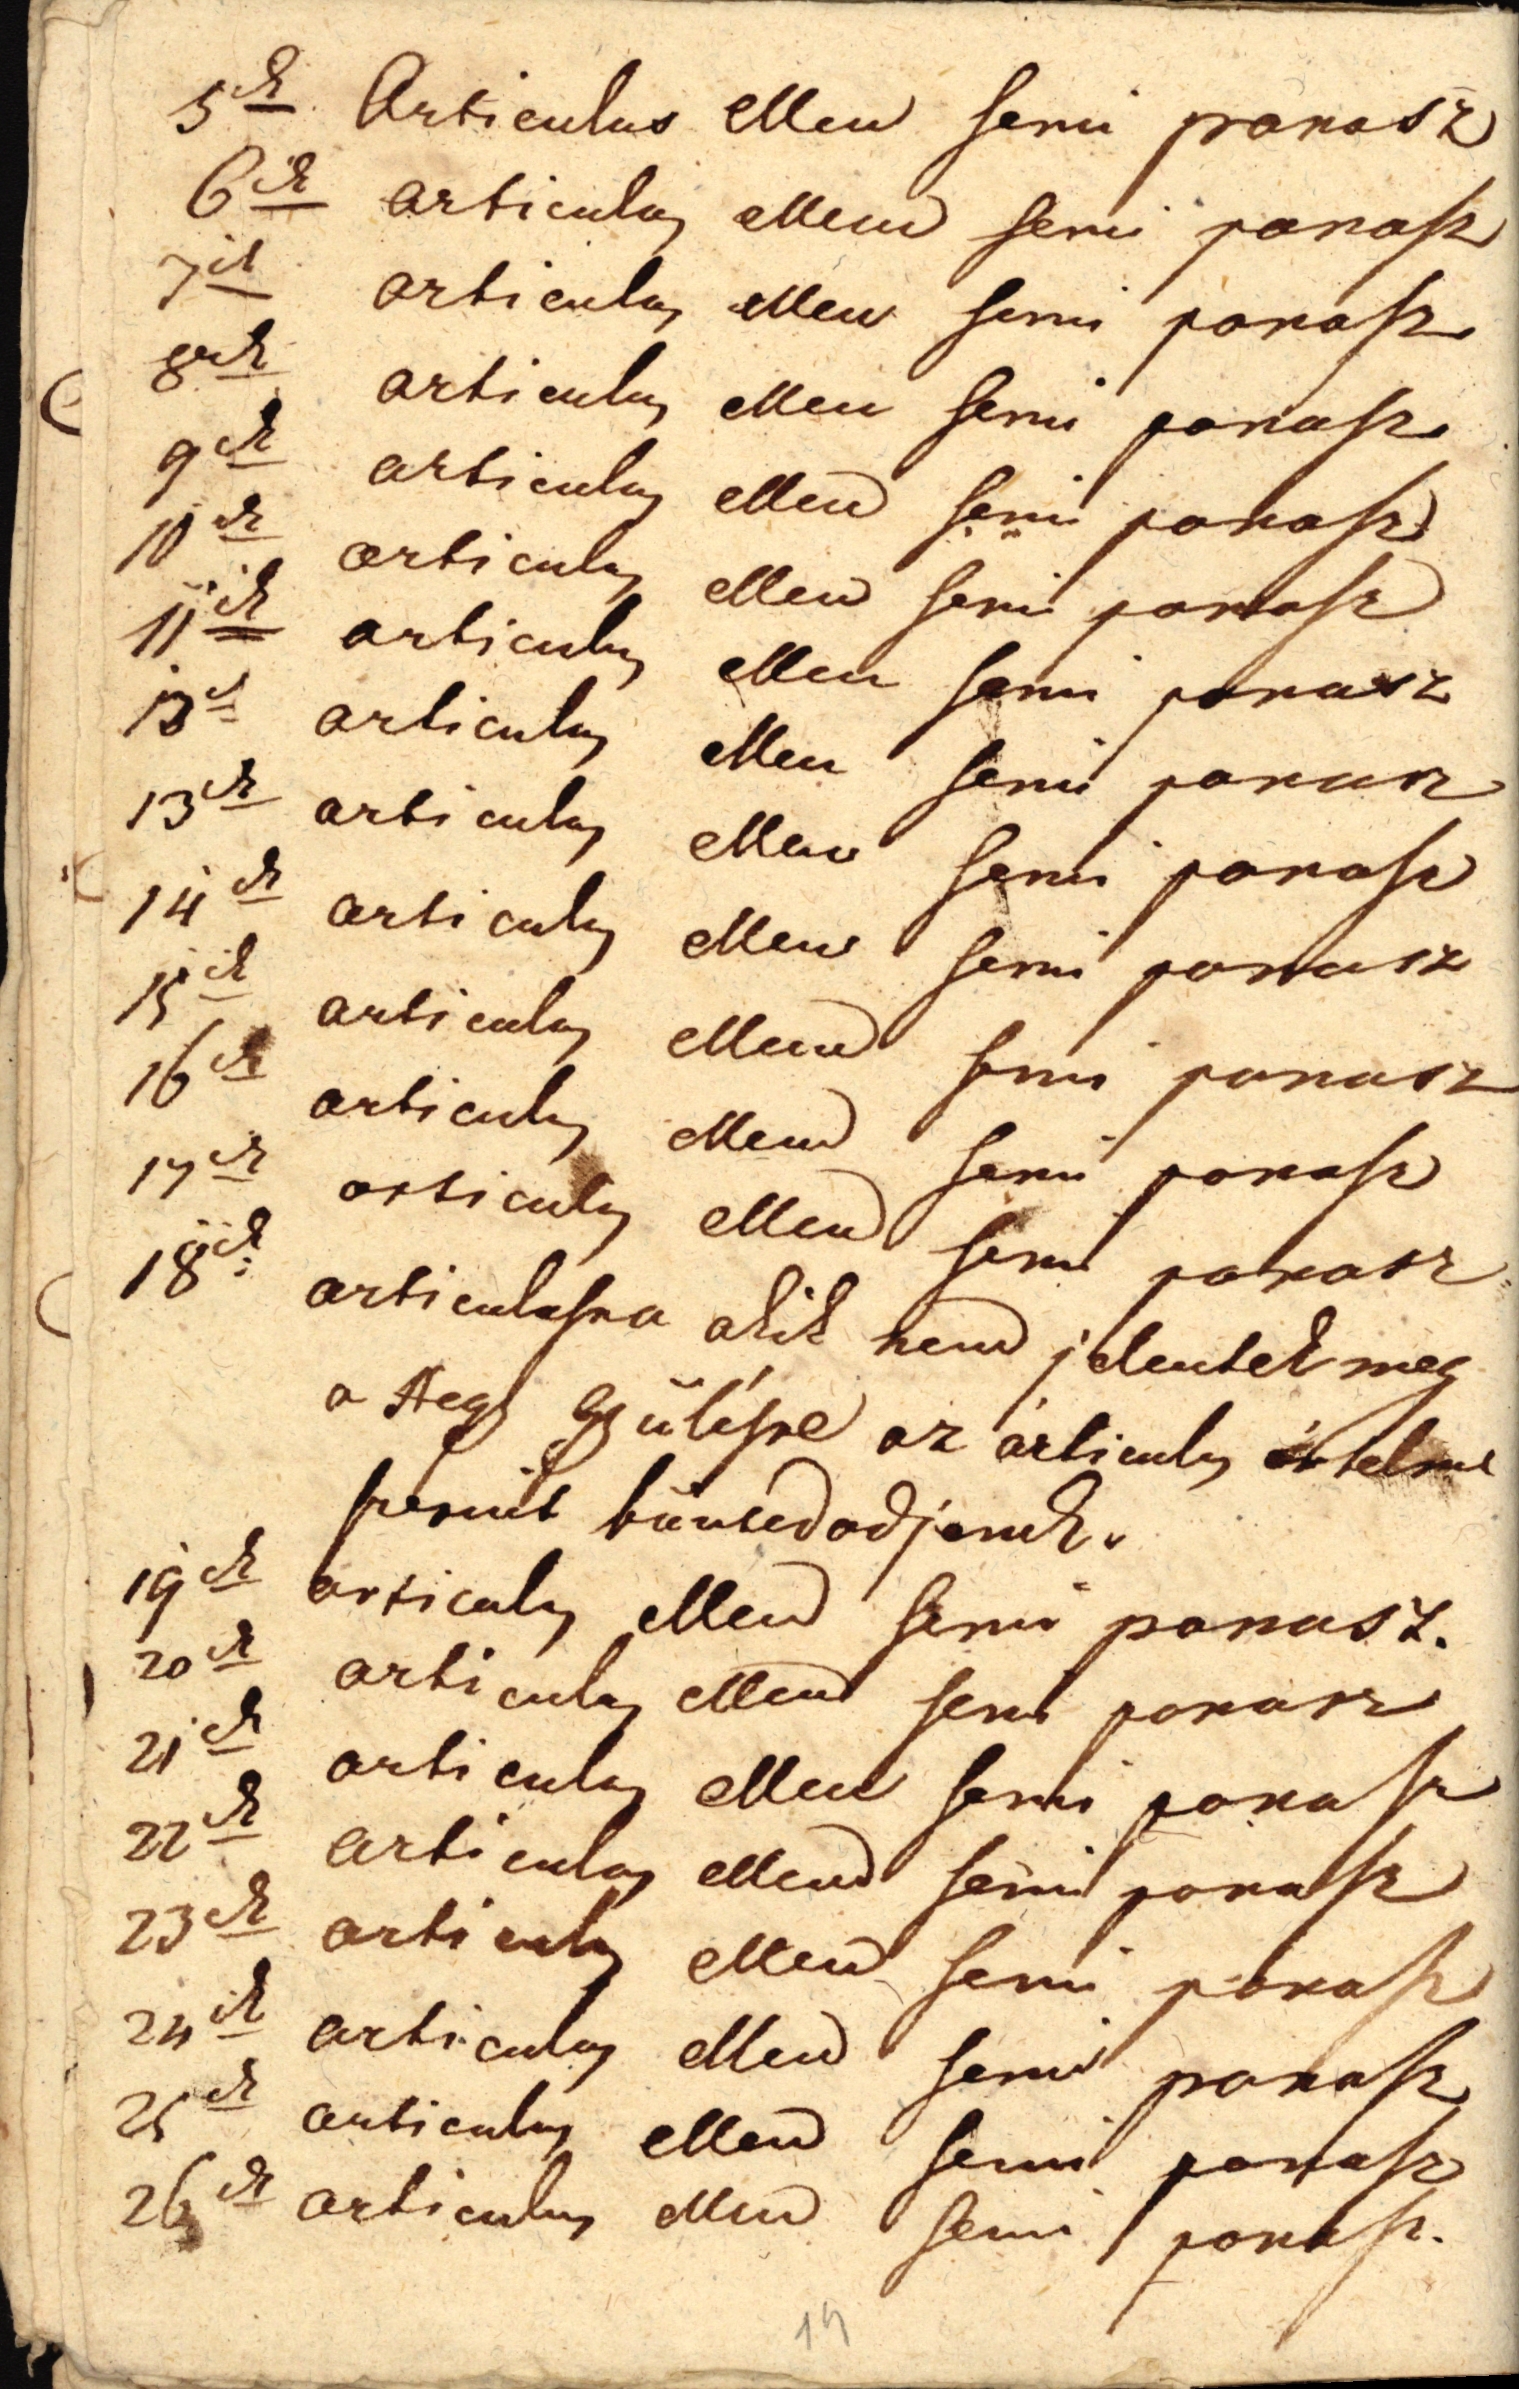 5ik Articulus ellen semi panasz
6ik articulus ellen semi panasz
7ik articulus ellen semi panasz
8ik articulus ellen semi panasz
9ik articulus ellen semi panasz
10ik articulus ellen semi panasz
11ik articulus ellen semi panasz
12ik articulus ellen semi panasz
13ik articulus ellen semi panasz
14ik articulus ellen semi panasz
15ik articulus ellen semi panasz
16ik articulus ellen semi panasz
17ik articulus ellen semi panasz
18ik articulusra akik nem jelentek meg
a Megy Gyülésre az articulus értelme
szerint büntedodjenek.
19ik articulus ellen semi panasz.
20ik articulus ellen semi panasz
21ik articulus ellen semi panasz
22ik articulus ellen semi panasz
23ik articulus ellen semi panasz
24ik articulus ellen semi panasz
25ik articulus ellen semi panasz
26ik articulus ellen semi panasz.
19